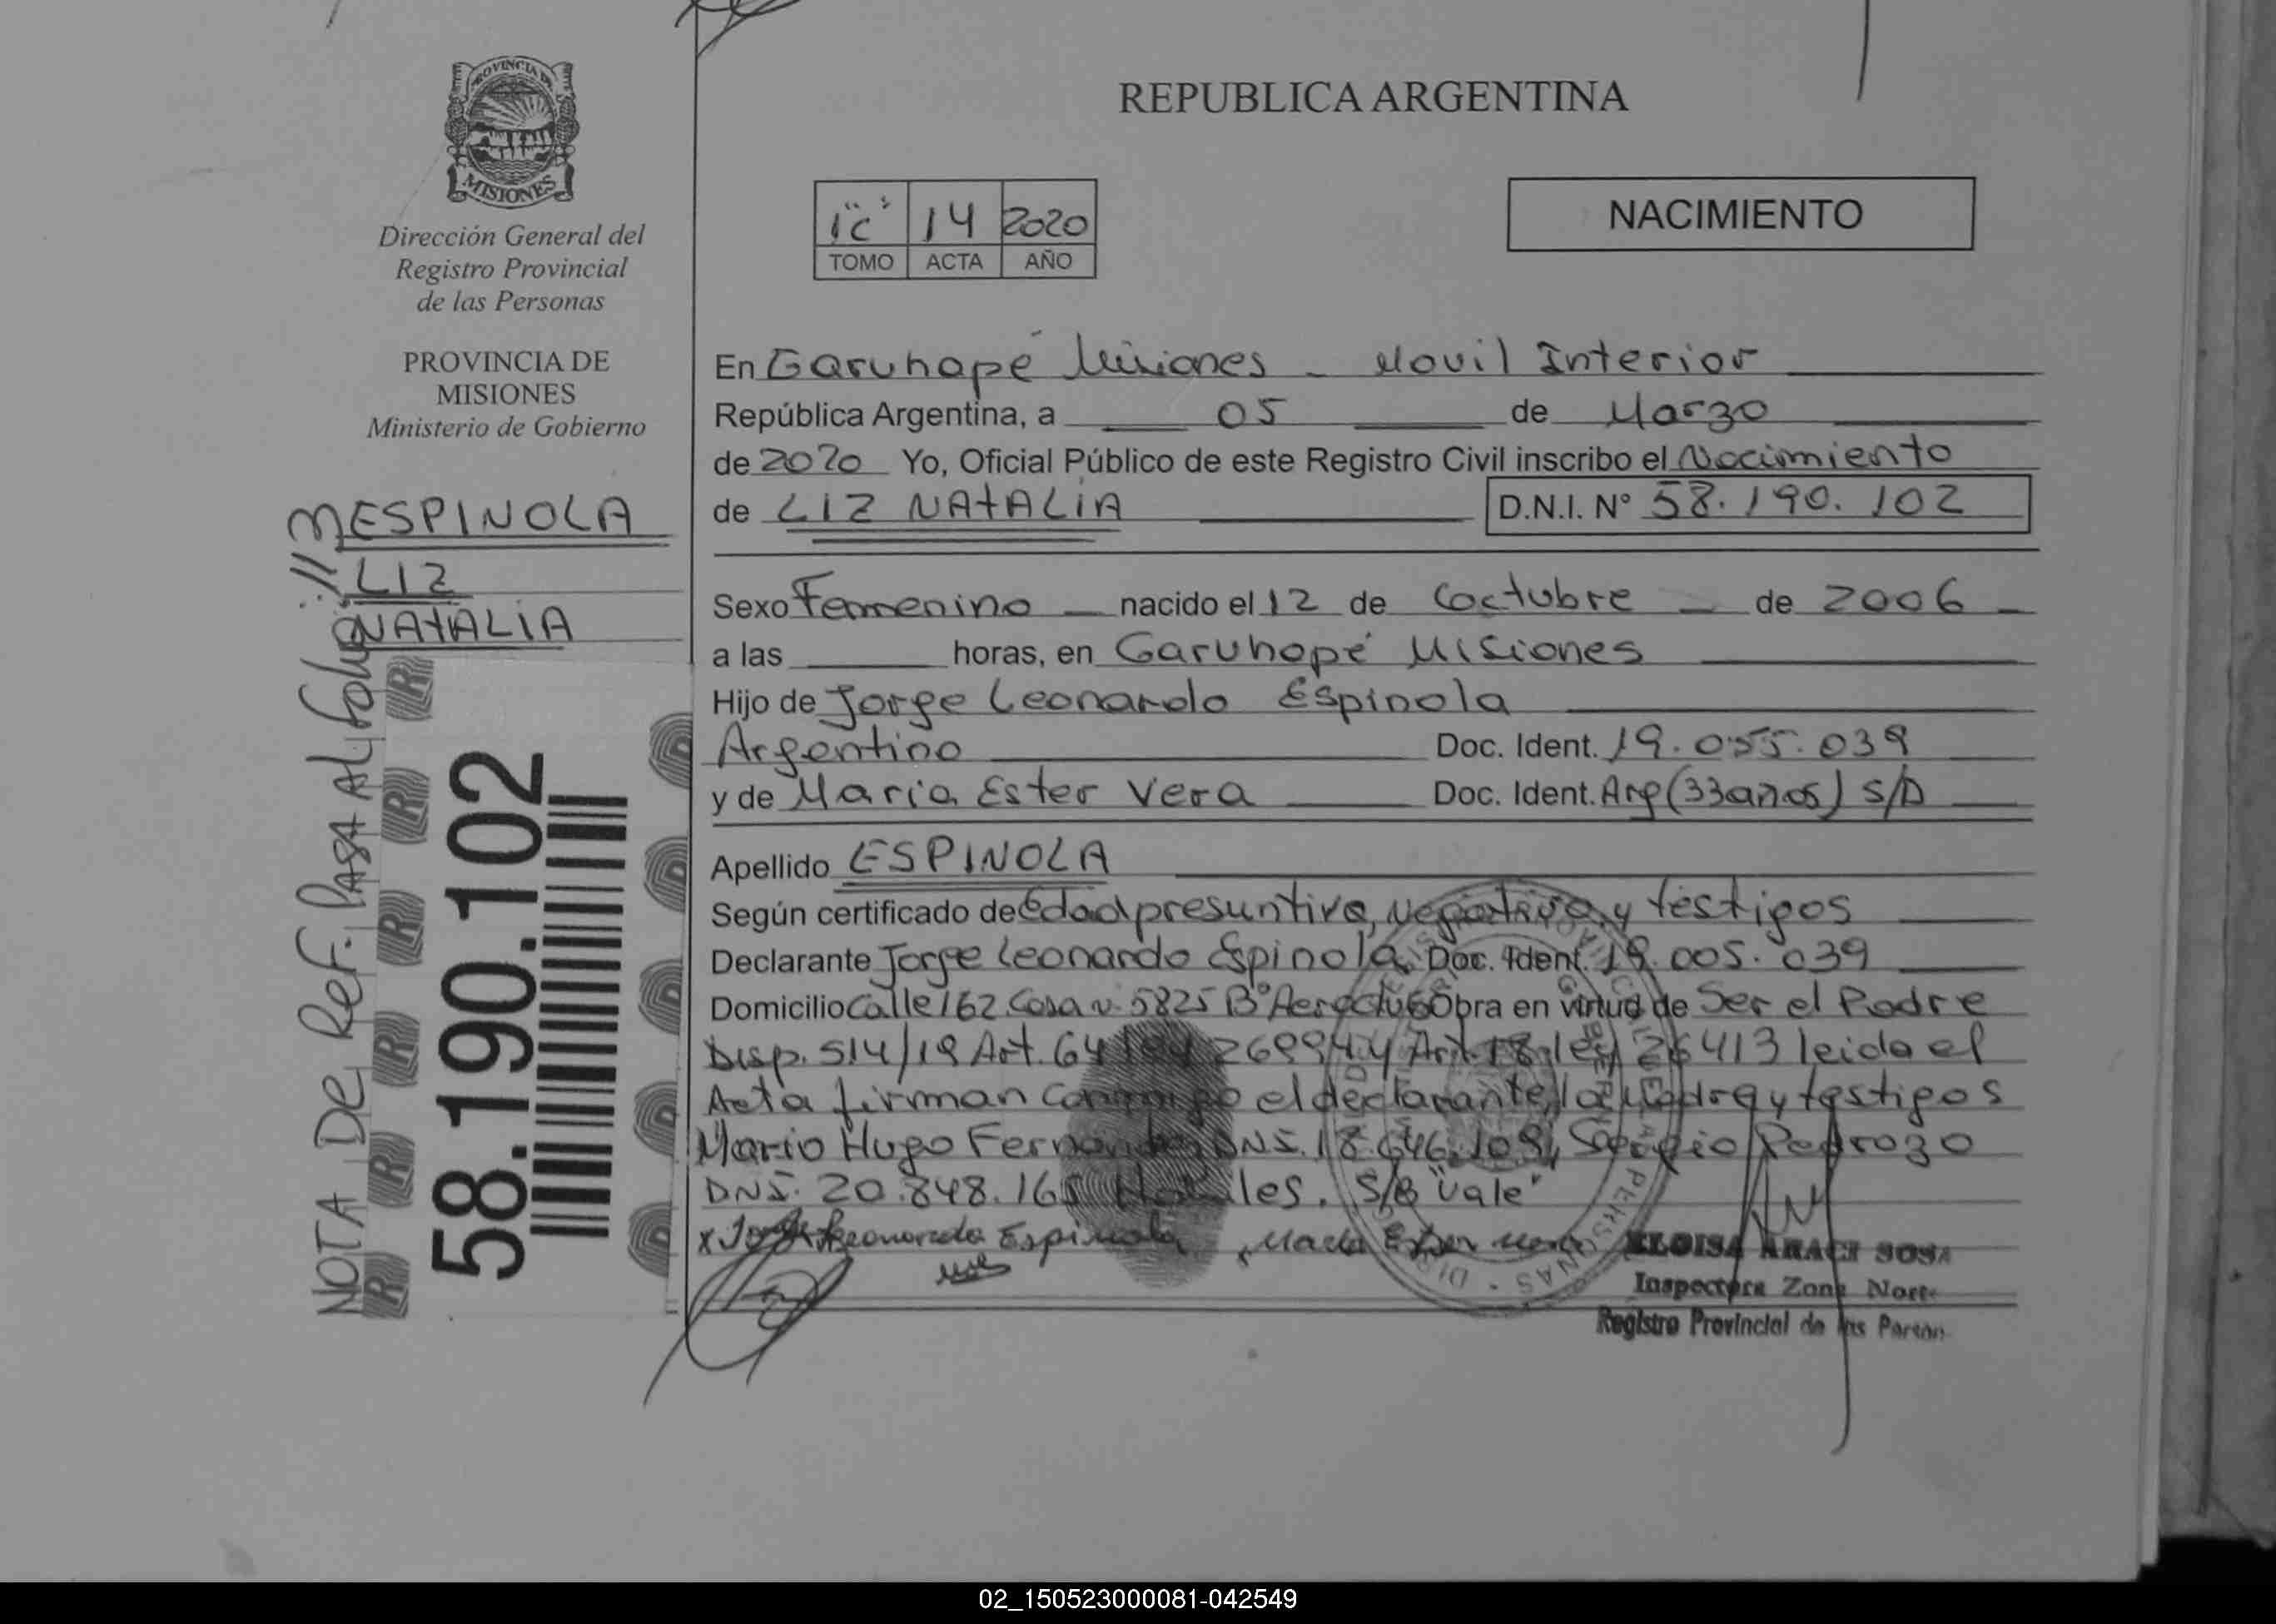 PROVINCIA DE
MISIONES
Dirección General del
Registro Provincial
de las Personas
PROVINCIA DE
MISIONES
Ministerio de Gobierno
ESPINOLA
LIZ
NATALIA
NOTA DE REF. PASA AL FOLIO
58.190.102
REPUBLICA ARGENTINA
1"C" 14 2020
TOMO ACTA AÑO
NACIMIENTO
En Garuhapé Misiones - Movil Interior
República Argentina, a 05 de Marzo
de 2020 Yo, Oficial Público de este Registro Civil inscribo el Nacimiento
de LIZ NATALIA D.N.I. N° 58.190.102
Sexo Femenino nacido el 12 de Octubre de 2006
a las horas, en Garuhapé Misiones
Hijo de Jorge Leonardo Espinola
Argentino Doc. Ident. 19.055.039
y de Maria Ester Vera Doc. Ident. Arg (33 años) S/D
Apellido ESPINOLA
Según certificado de Edad presuntiva, negativa y testigos
Declarante Jorge Leonardo Espinola Doc. Ident. 19.005.039
Domicilio Calle 162 Casa n° 5825 B° Aeroclub Obra en virtud de Ser el Padre
Disp. 514/19 Art. 64 26994 y Art. 18 ley 26413 leida el
Acta firman conmigo el declarante, la Madre y testigos
Mario Hugo Fernandez DNI. 18.646.109, Sergio Pedrozo
DNI. 20.848.165 S/B "Vale"
x Jorge Leonardo Espinola Maria Ester Vera
ELOISA ARACI SOSA
Inspectora Zona Norte
Registro Provincial de las Person
02_150523000081-042549